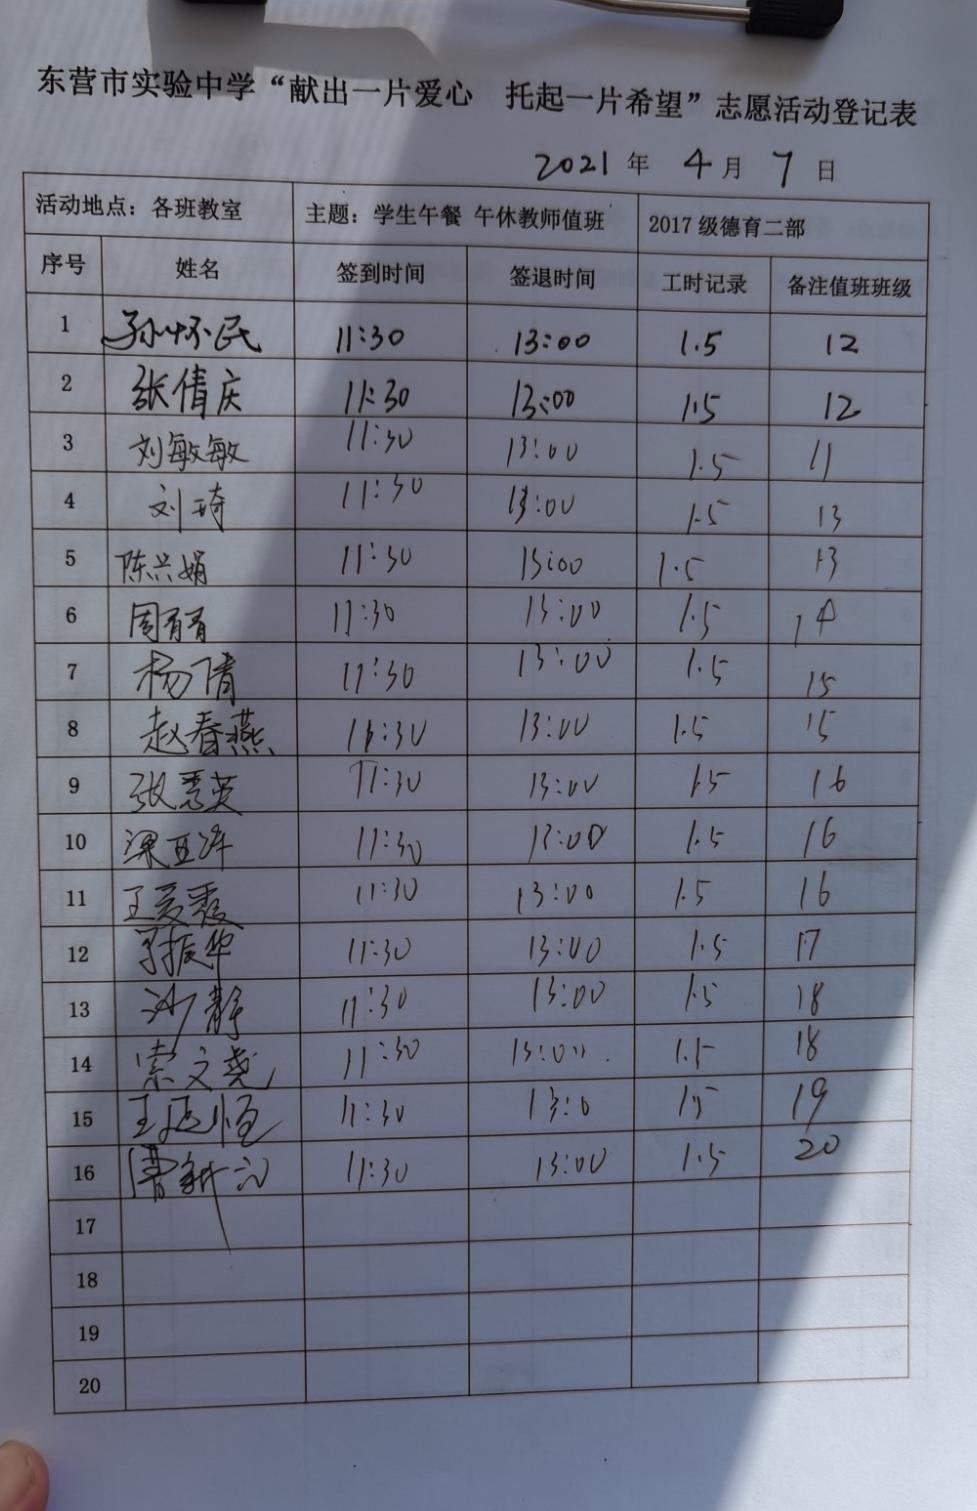 东营市实验中学“献出一片爱心 托起一片希望”志愿活动登记表
2021 年 4 月 7 日
活动地点：各班教室 主题：学生午餐 午休教师值班 2017 级德育二部
序号 姓名 签到时间 签退时间 工时记录 备注值班班级
1 孙怀民 11:30 13:00 1.5 12
2 张倩庆 11:30 13:00 1.5 12
3 刘敏敏 11:30 13:00 1.5 11
4 刘琦 11:30 13:00 1.5 13
5 陈兴娟 11:30 13:00 1.5 13
6 周 11:30 13:00 1.5 14
7 杨倩 11:30 13:00 1.5 15
8 赵春燕 11:30 13:00 1.5 15
9 张秀英 11:30 13:00 1.5 16
10 梁亚 11:30 13:00 1.5 16
11 王爱霞 11:30 13:00 1.5 16
12 振华 11:30 13:00 1.5 17
13 沙静 11:30 13:00 1.5 18
14 索文尧 11:30 13:00 1.5 18
15 王延恒 11:30 13:0 1.5 19
16 曹新 11:30 13:00 1.5 20
17
18
19
20